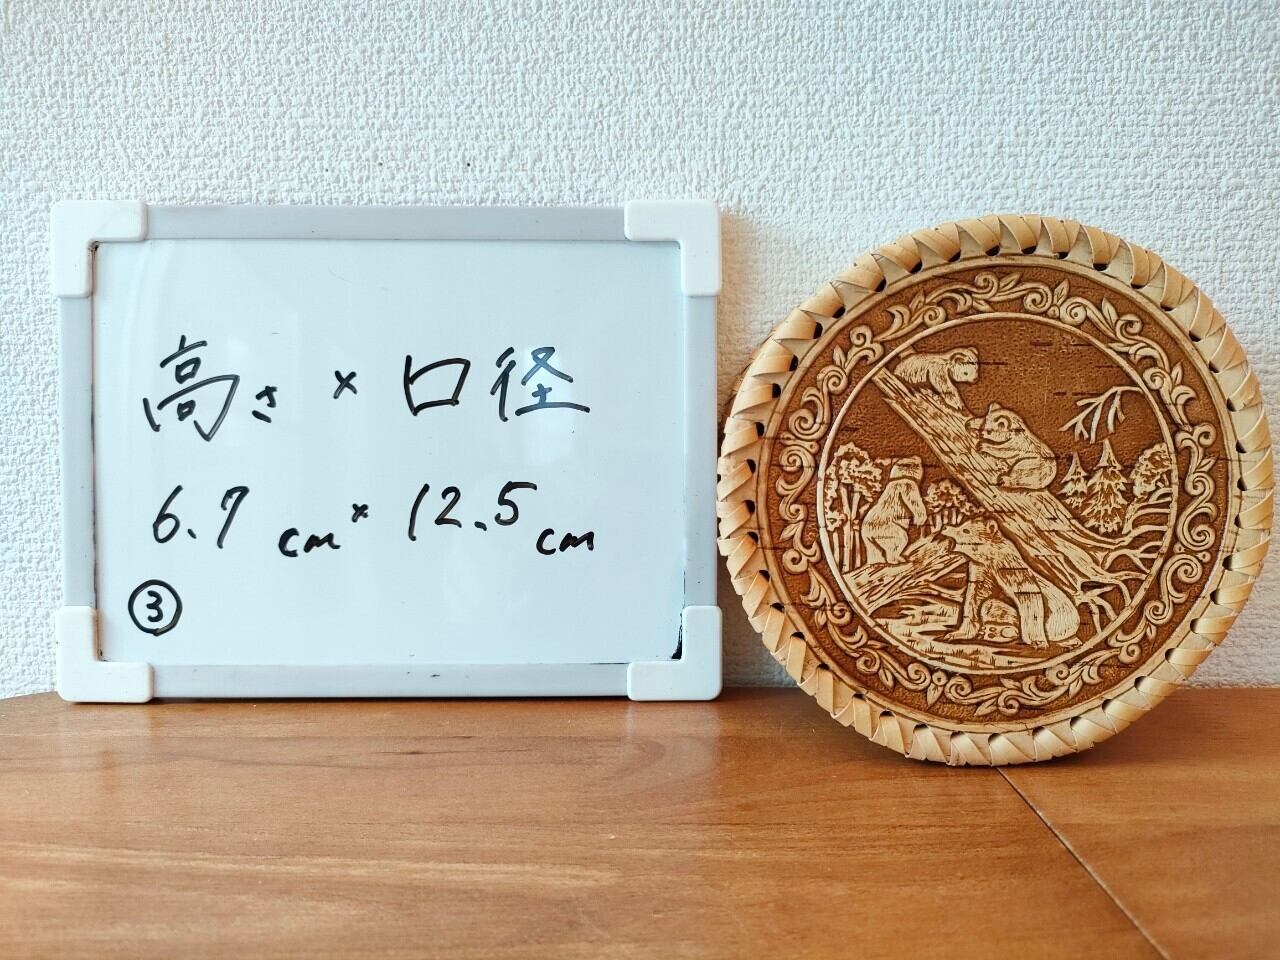 高さ × 口径
6.7 cm × 12.5 cm
③